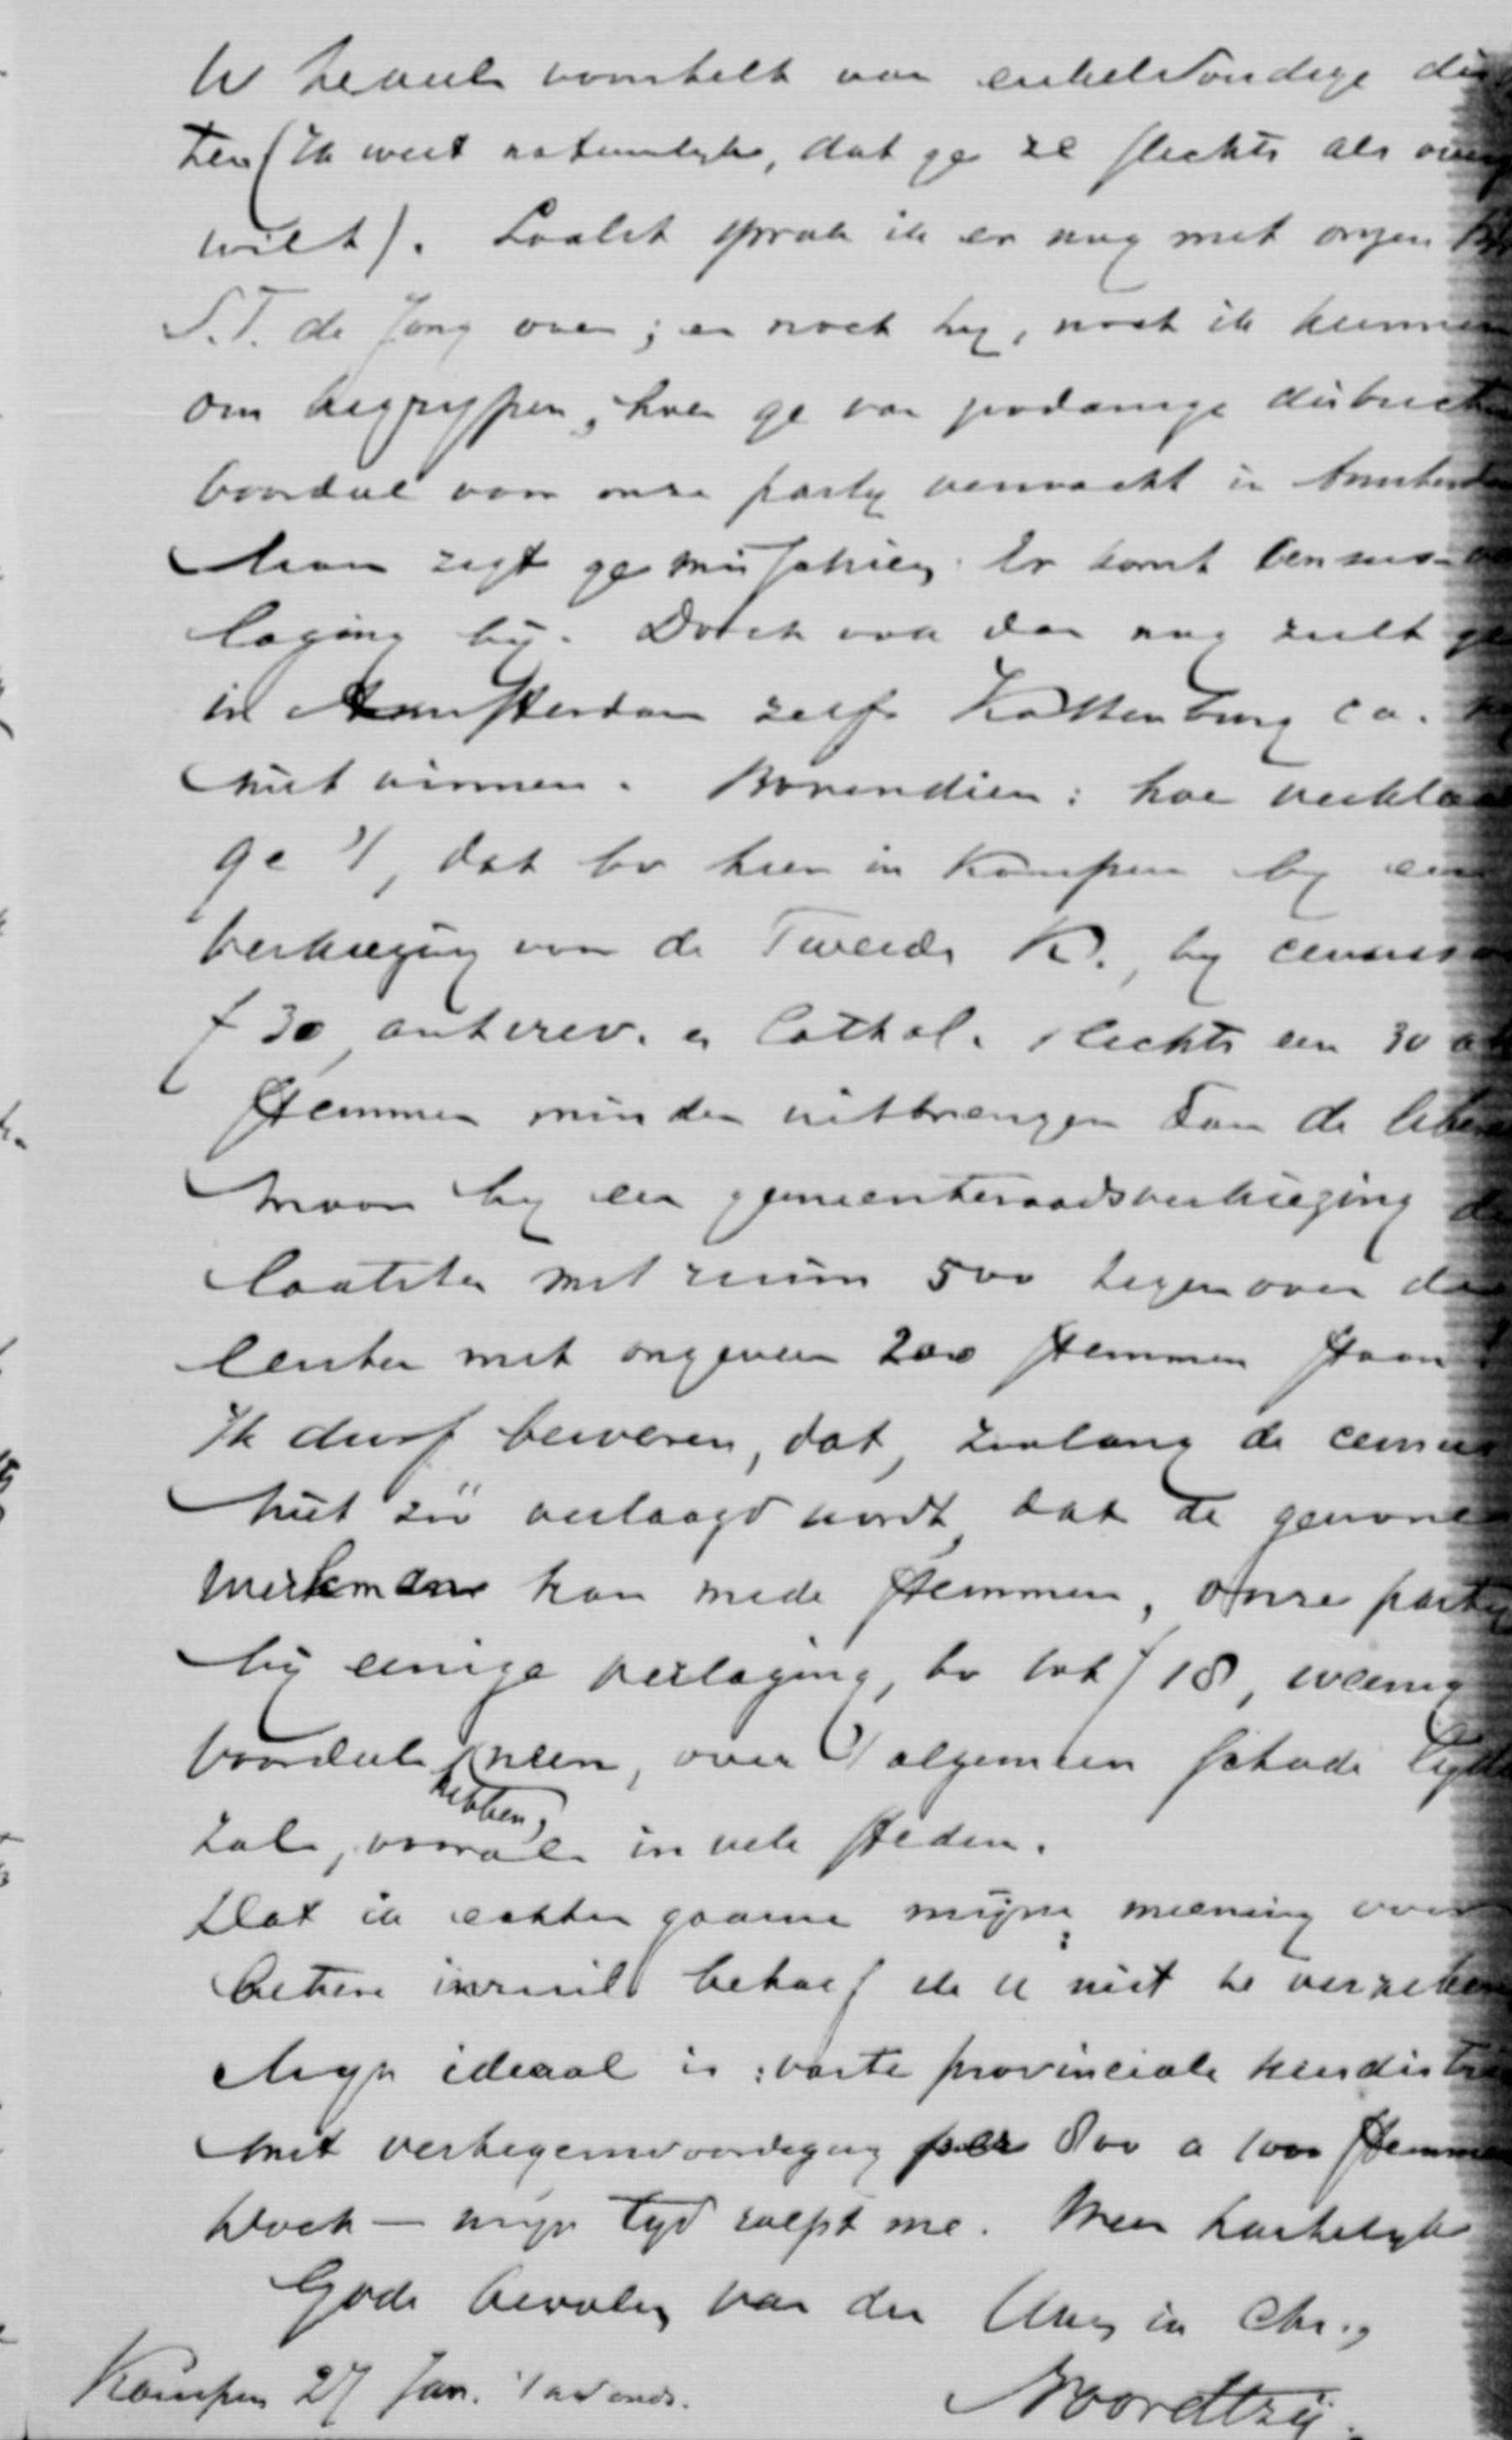 U heeul voorstelt van enkelvoudige dis
ten (Ik weet natuurlyk, dat ge ze slechts als over
wilt). Laatst sprak ik er nog met onzen
S.T. de Jong over; en noch hy, noch ik kunnen
om begrypen, hoe ge van zoodanige district
voordeel voor onze party verwacht in Amsterdam
Maar zegt ge misschien: Er komt census-
laging by. Doch ook dan nog zult ge
in Amsterdam zelfs Kattenburg c.a.
niet winnen. Bovendien: hoe verklaar
ge 't, dat bv hier in Kampen by een
verkiezing voor de Tweede K., by census
f 30, antirev. en Cathol. slechts een 30
stemmen minder uitbrengen dan de liber
maar by een gemeenteraadsverkiezing de
laatsten met ruim 500 tegenover de
eersten met ongeveer 200 stemmen staan!
Ik durf beweren, dat, zoolang de census
niet zóó verlaagd wordt, dat de gewone
werkman kan mede stemmen, onze party
by eenige verlaging, bv tot f 18, weinig
voordeel neen, over 't algemeen schade
hebben,
zal, vooral in vele steden.
Dat ik echter gaarne myne meening voor
betere inruil behoef ik U niet te verzeker
Myn ideaal is: vaste provinciale kiesdistri
met vertegenwoordiging per 800 a 1000 stemmen
Doch — myn tyd roept me. Meer hartelyk
Gode bevolen van den Uwen in Chr.,
Noordtzij.
Kampen 27 Jan. 's avonds.